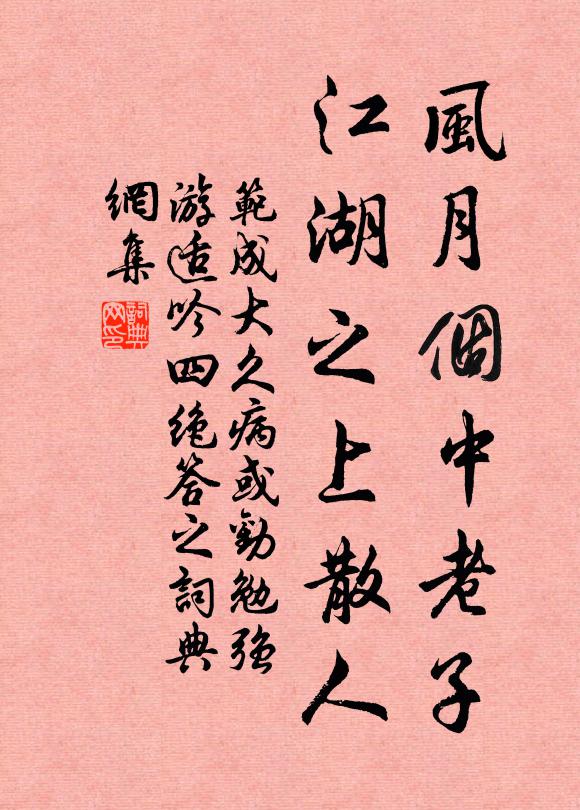 風月個中老子
江湖之上散人
範成大久病或勸勉強
游适吟四絶答之詞典
網集
詞典
网印